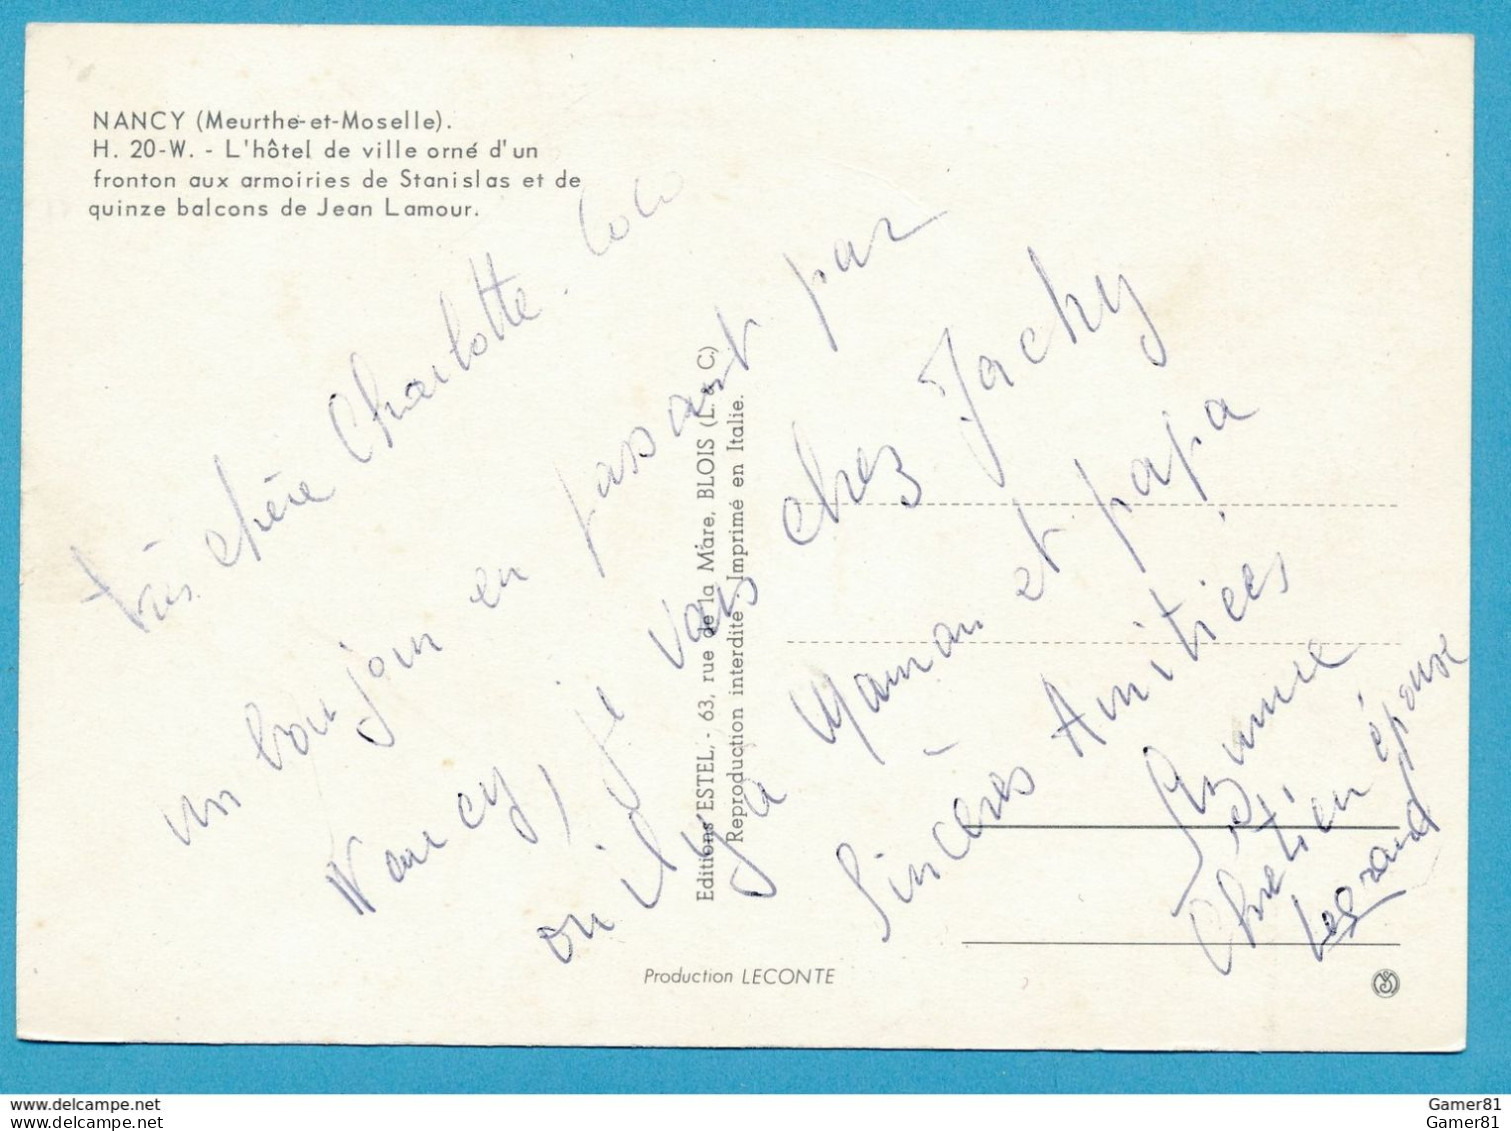 NANCY (Meurthe-et-Moselle).
H. 20-W. - L'hôtel de ville orné d'un
fronton aux armoiries de Stanislas et de
quinze balcons de Jean Lamour.
très chère Charlotte. Coco
un bonjour en passant par
Nancy, je vais chez Jacky
où il y a Maman et papa
Sincères Amitiées
Chretien épouse
Legrand
Editions ESTEL, - 63, rue de la Mare, BLOIS (L. & C.)
Reproduction interdite Imprimé en Italie.
Production LECONTE
delcampe.net
Gamer81
delcampe.net
Gamer81